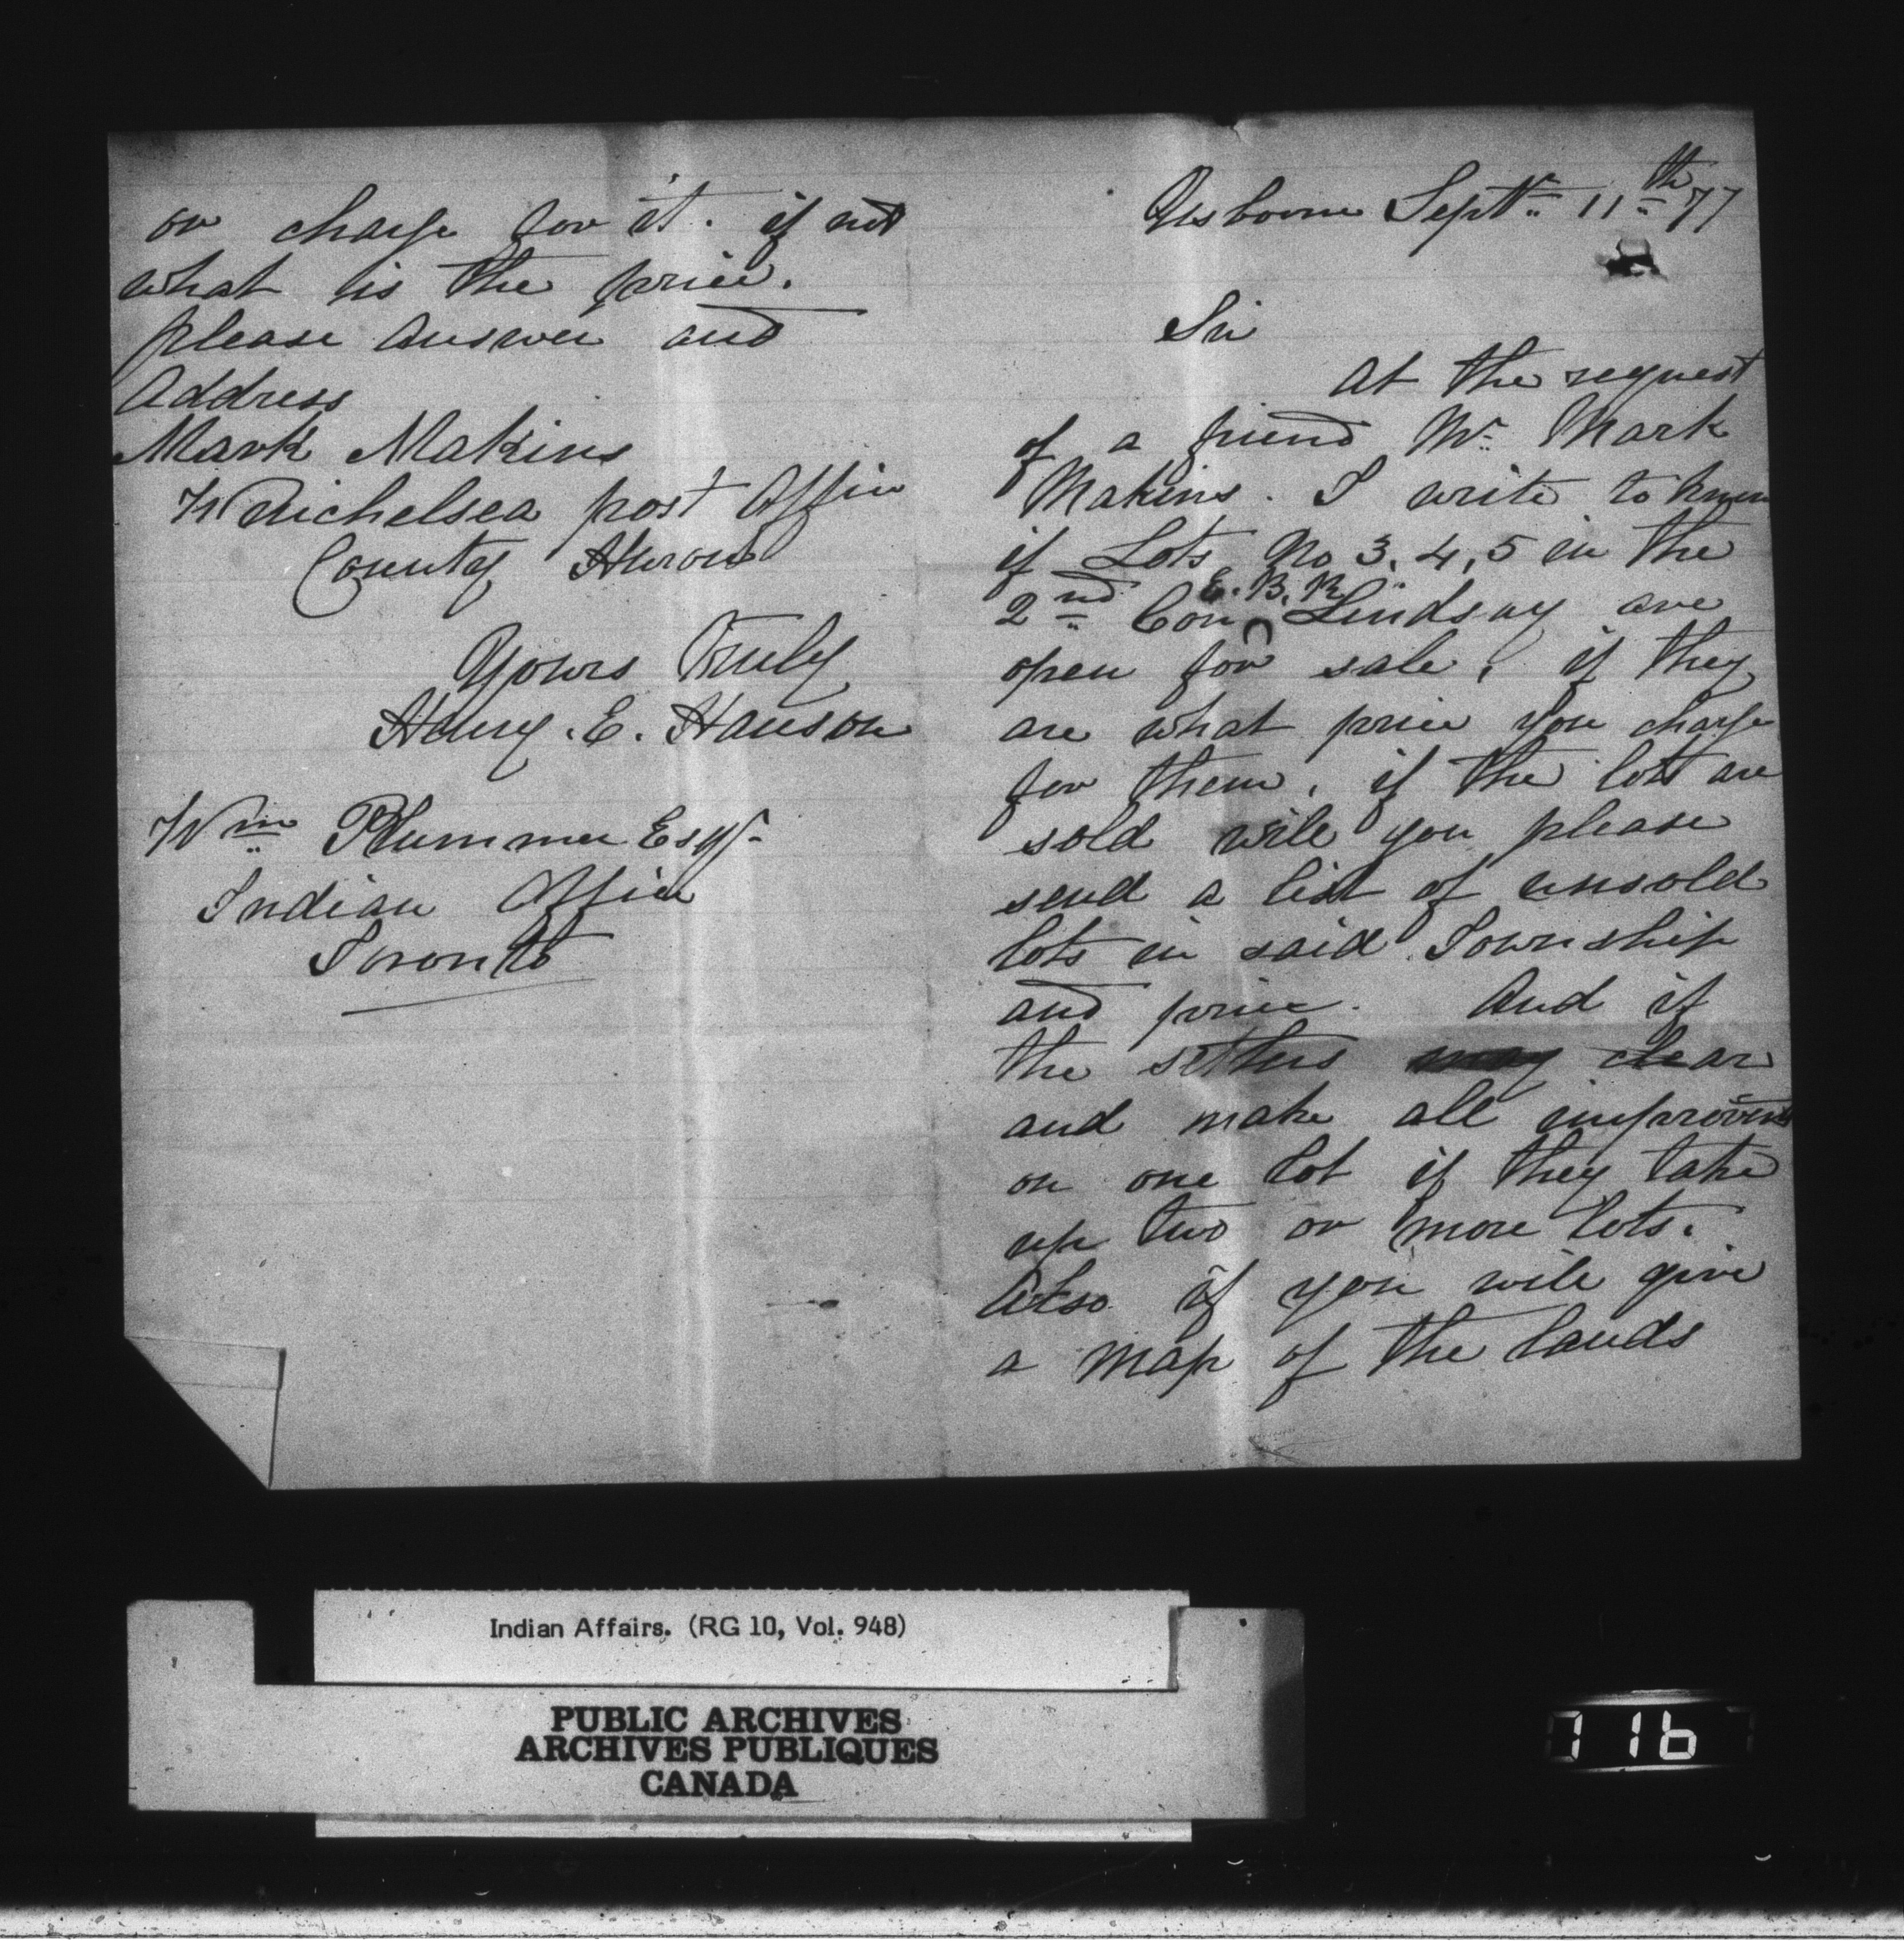 Usborne Septr 11th 77
Sir
At the request
of a friend Mr Mark
Makins. I write to know
if Lots No 3, 4, 5 in the
E. B. R
2nd Con Lindsay are
open for sale, if they
are what price you charge
for them, if the lots are
sold will you please
send a list of unsold
lots in said Township
and price. And if
the settlers may clear
and make all improvents
on one lot if they take
up two or more lots.
Also if you will give
a map of the lands
or charge for it. if not
what is the price.
please answer and
Address
Mark Makins
Winchelsea post Office
County Huron
Yours Truly
Henry. E. Hanson
Wm Plummer Esqr
Indian Office
Toronto
Indian Affairs. (RG 10, Vol. 948)
PUBLIC ARCHIVES
ARCHIVES PUBLIQUES
CANADA